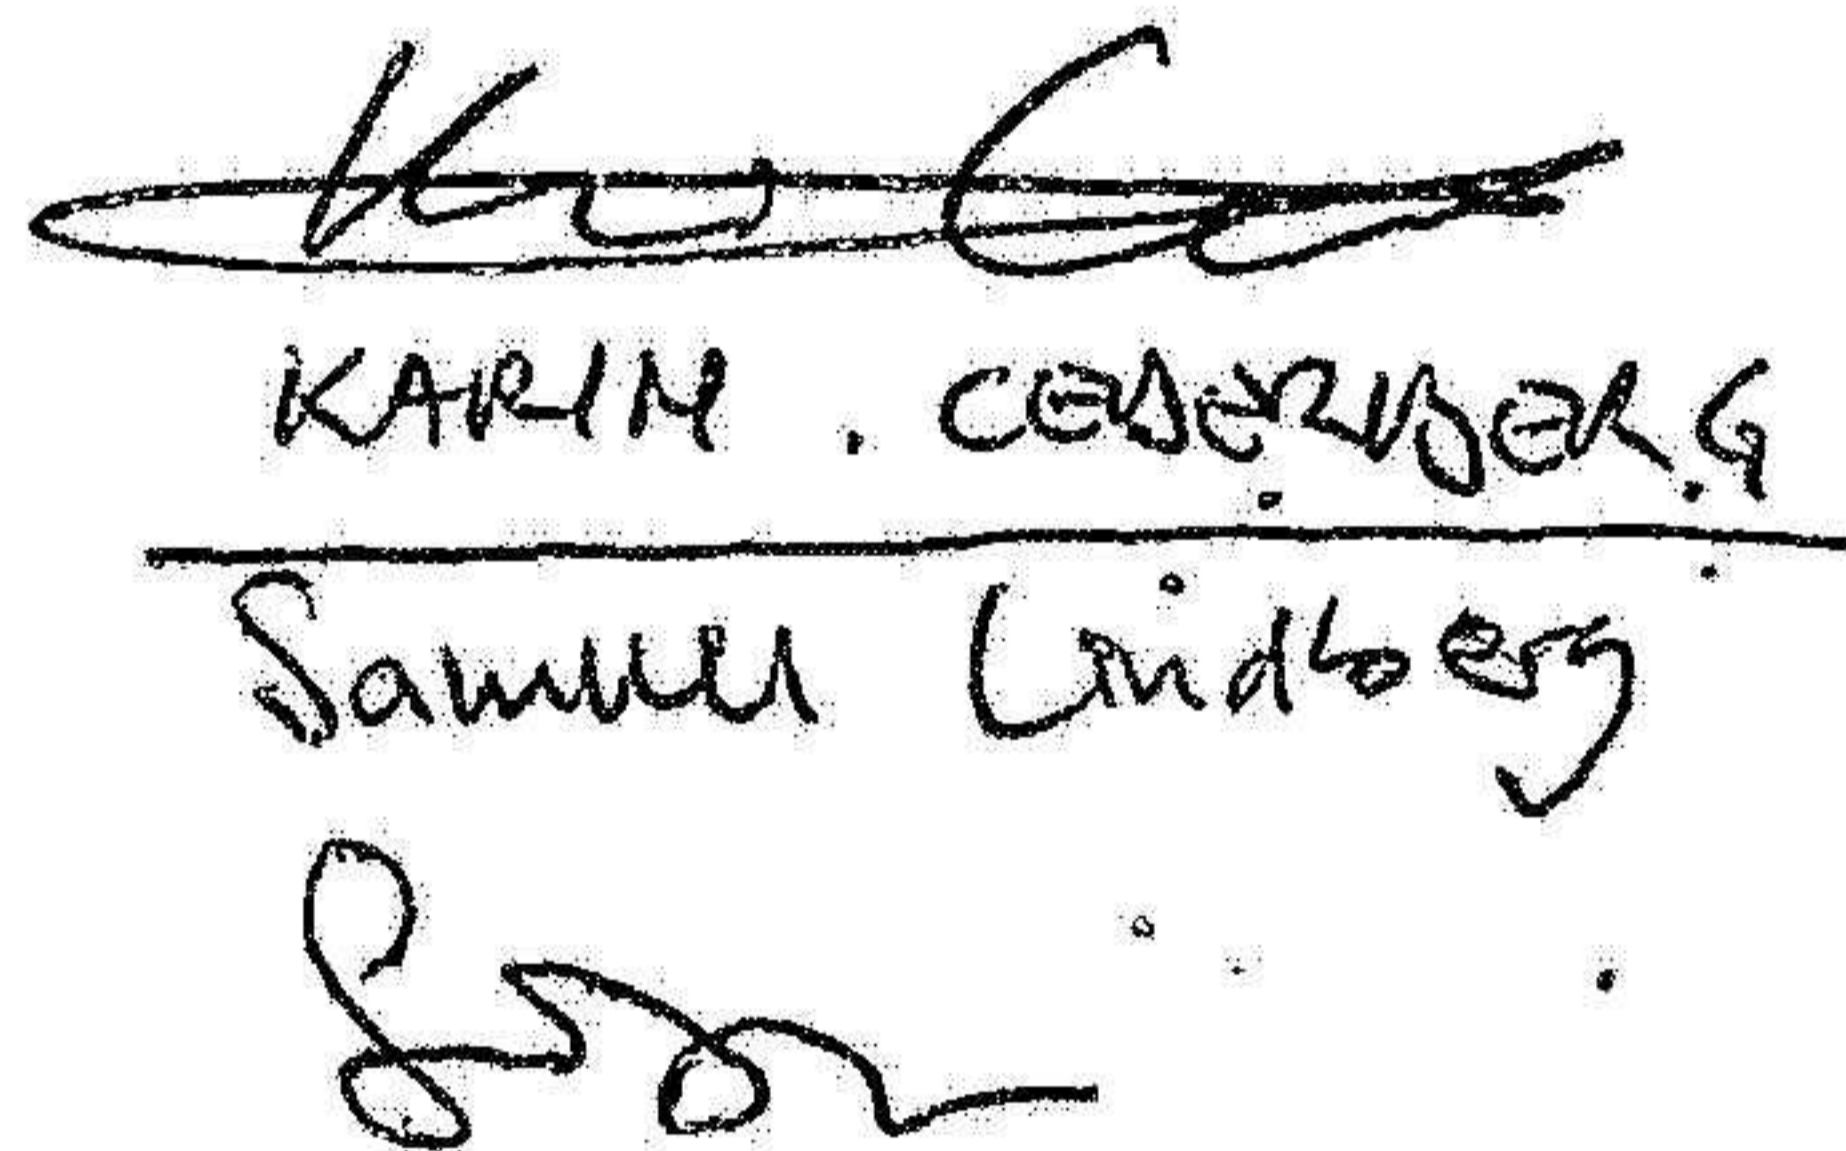 KARIM CEDERBERG
Samuel Lindberg